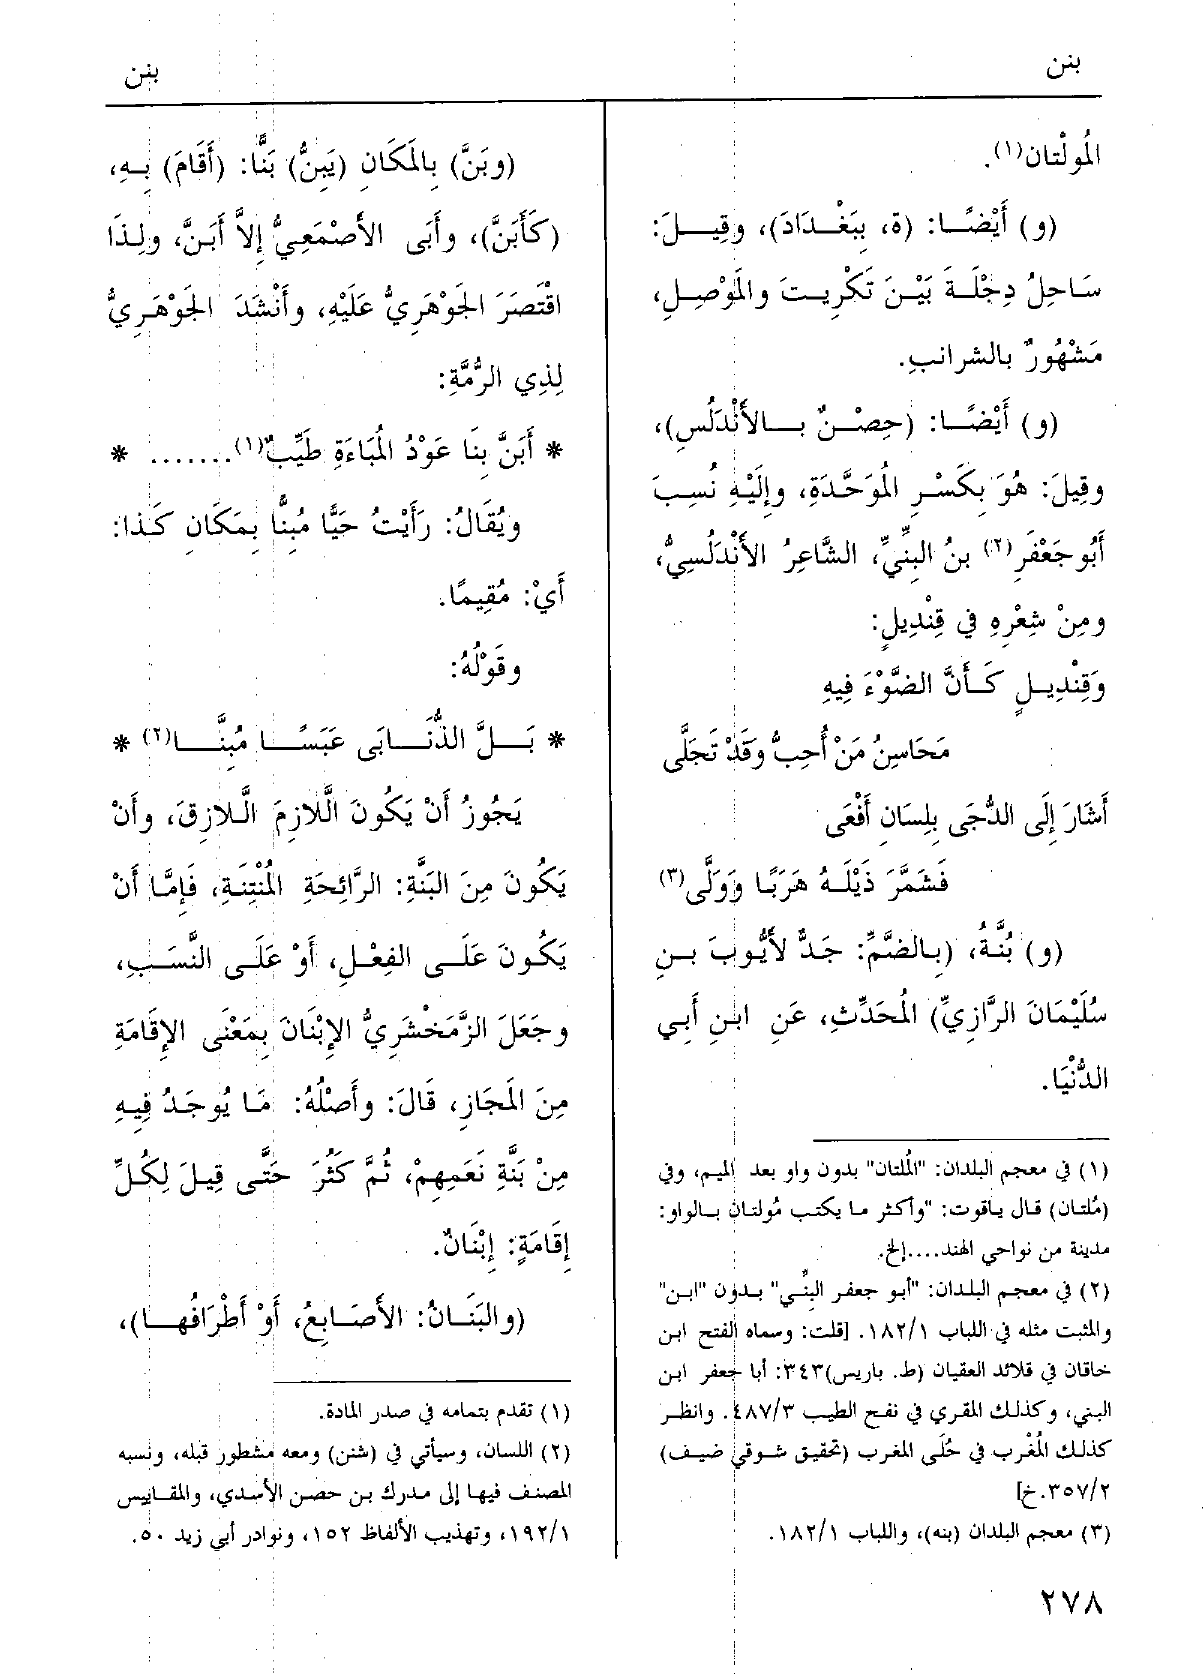 بنن
بنن
المُولْتان(١).
(و) أَيْضًا: (ة، بِبَغْدَادَ)، وقِيلَ:
سَاحِلُ دِجْلَةَ بَيْنَ تَكْرِيتَ والمَوْصِلِ،
مَشْهُورٌ بالشرانبِ.
(و) أَيْضًا: (حِصْنٌ بالأَنْدَلُسِ)،
وقِيلَ: هُوَ بِكَسْرِ المُوَحَّدَةِ، وإِلَيْهِ نُسِبَ
أَبُو جَعْفَرِ(٢) بنُ البِنِّيِّ، الشَّاعِرُ الأَنْدَلُسِيُّ،
ومِنْ شِعْرِهِ في قِنْدِيلٍ:
وَقِنْدِيلٍ كَأَنَّ الضَّوْءَ فِيهِ
مَحَاسِنُ مَنْ أُحِبُّ وَقَدْ تَجَلَّى
أَشَارَ إِلَى الدُّجَى بِلِسَانِ أَفْعَى
فَشَمَّرَ ذَيْلَهُ هَرَبًا وَوَلَّى(٣)
(و) بُنَّةُ، (بِالضَّمِّ: جَدٌّ لأَيُّوبَ بنِ
سُلَيْمَانَ الرَّازِيِّ) المُحَدِّثِ، عَنِ ابنِ أَبِي
الدُّنْيَا.
(١) في معجم البلدان: "المُلتان" بدون واو بعد الميم، وفي
(مُلتان) قال ياقوت: "وأكثر ما يكتب مُولتان بالواو:
مدينة من نواحي الهند....إلخ.
(٢) في معجم البلدان: "أبو جعفر البِنِّي" بدون "ابن"
والمثبت مثله في اللباب ١٨٢/١. [قلت: وسماه الفتح ابن
خاقان في قلائد العقيان (ط. باريس)٣٤٣: أبا جعفر ابن
البني، وكذلك المقري في نفح الطيب ٤٨٧/٣. وانظر
كذلك المُغْرب في حُلَى المغرب (تحقيق شوقي ضيف)
٣٥٧/٢.خ]
(٣) معجم البلدان (بنه)، واللباب ١٨٢/١.
(وبَنَّ) بِالمَكَانِ (يَبِنُّ) بَنًّا: (أَقَامَ) بِهِ،
(كَأَبَنَّ)، وأَبَى الأَصْمَعِيُّ إِلاَّ أَبَنَّ، ولِذَا
اقْتَصَرَ الجَوْهَرِيُّ عَلَيْهِ، وأَنْشَدَ الجَوْهَرِيُّ
لِذِي الرُّمَّةِ:
* أَبَنَّ بِنَا عَوْدُ المُبَاءَةِ طَيِّبٌ(١)....... *
ويُقَالُ: رَأَيْتُ حَيًّا مُبِنًّا بِمَكَانِ كَذا:
أَيْ: مُقِيمًا.
وقَوْلُهُ:
* بَلَّ الذُّنَابَى عَبَسًا مُبِنَّا(٢) *
يَجُوزُ أَنْ يَكُونَ الَّلازِمَ الَّلازِقَ، وأَنْ
يَكُونَ مِنَ البَنَّةِ: الرَّائِحَةِ المُنْتِنَةِ، فَإِمَّا أَنْ
يَكُونَ عَلَى الفِعْلِ، أَوْ عَلَى النَّسَبِ،
وجَعَلَ الزَّمَخْشَرِيُّ الإِبْنَانَ بِمَعْنَى الإِقَامَةِ
مِنَ المَجَازِ، قَالَ: وأَصْلُهُ: مَا يُوجَدُ فِيهِ
مِنْ بَنَّةِ نَعَمِهِمْ، ثُمَّ كَثُرَ حَتَّى قِيلَ لِكُلِّ
إِقَامَةٍ: إِبْنَانٌ.
(والبَنَانُ: الأَصَابِعُ، أَوْ أَطْرَافُهَا)،
(١) تقدم بتمامه في صدر المادة.
(٢) اللسان، وسيأتي في (شنن) ومعه مشطور قبله، ونسبه
المصنف فيها إلى مدرك بن حصن الأسدي، والمقاييس
١٩٢/١، وتهذيب الألفاظ ١٥٢، ونوادر أبي زيد ٥٠.
٢٧٨